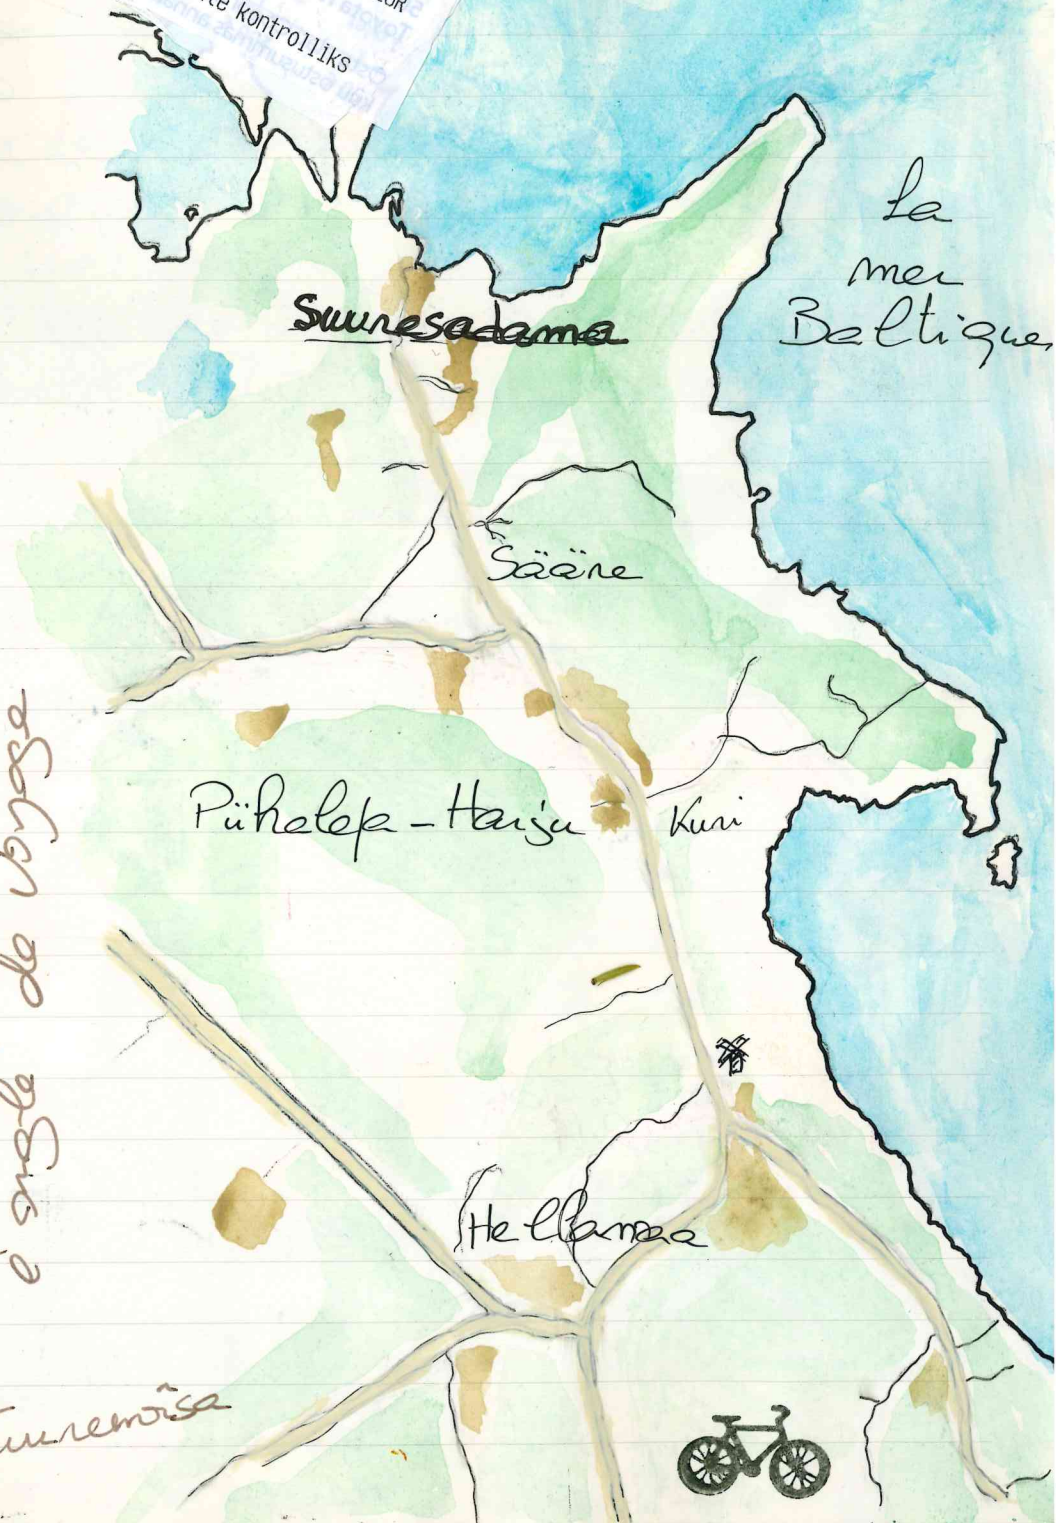 kontrolliks
La
mer
Baltique
Suuresadama
Sääre
Pühalepa-Harju
Kuri
Hellamaa
de voyage
angle